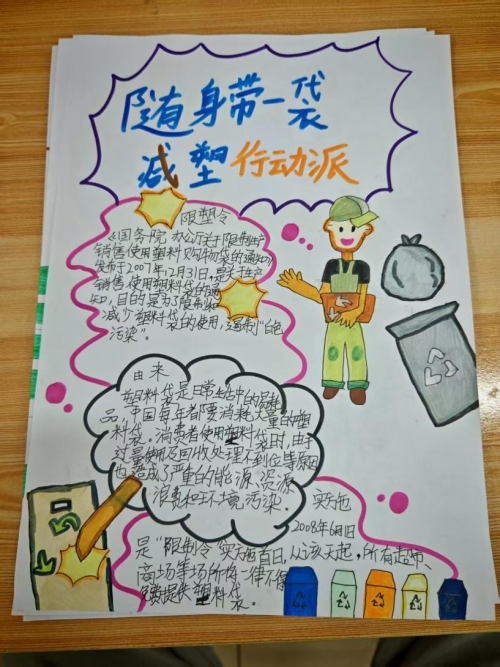 随身带一袋
减塑行动派
限塑令
《国务院办公厅关于限制生产
销售使用塑料购物袋的通知》
发布于2007年12月31日,是关于生产
销售使用塑料袋的通
知,目的是为了限制和
减少塑料袋的使用,遏制"白色
污染"。
由来
塑料袋是日常生活中的易耗
品,中国每年都要消耗大量的塑
料袋。消费者使用塑料袋时,由于
过量使用及回收处理不到位等原因
也造成了严重的能源、资源
浪费和环境污染.
实施
2008年6月1日
是"限制令"实施首日,从该天起,所有超市、
商场等场所将一律不得
免费提供塑料袋.